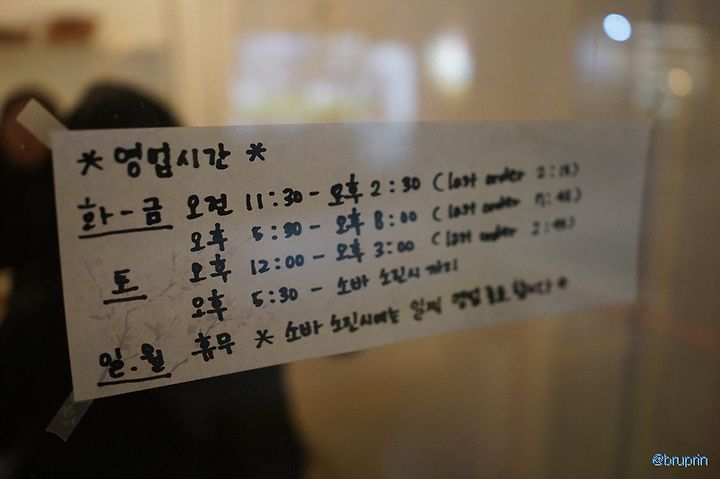 * 영업시간 *
화-금 오전 11:30 - 오후 2:30 (last order 2:15)
오후 5:30 - 오후 8:00 (last order 7:45)
토 오후 12:00 - 오후 3:00 (last order 2:45)
오후 5:30 - 소바 소진시 까지
일.월 휴무 * 소바 소진시에는 일찍 영업 종료 합니다 *
@bruprin